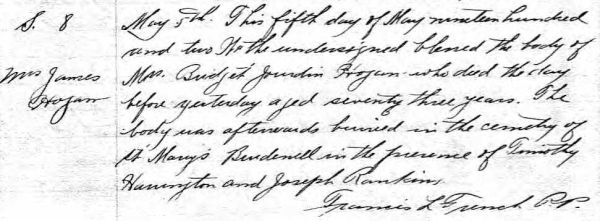 S. 8
Mrs James
Hogan
May 5th. This fifth day of May nineteen hundred
and two We the undersigned blessed the body of
Mrs. Bridget Jourdin Hogan who died the day
before yesterday aged seventy three years. The
body was afterwards buried in the cemetry of
St Mary's Brudenell in the presence of Timothy
Harrington and Joseph Rankin,
Francis L French P.P.